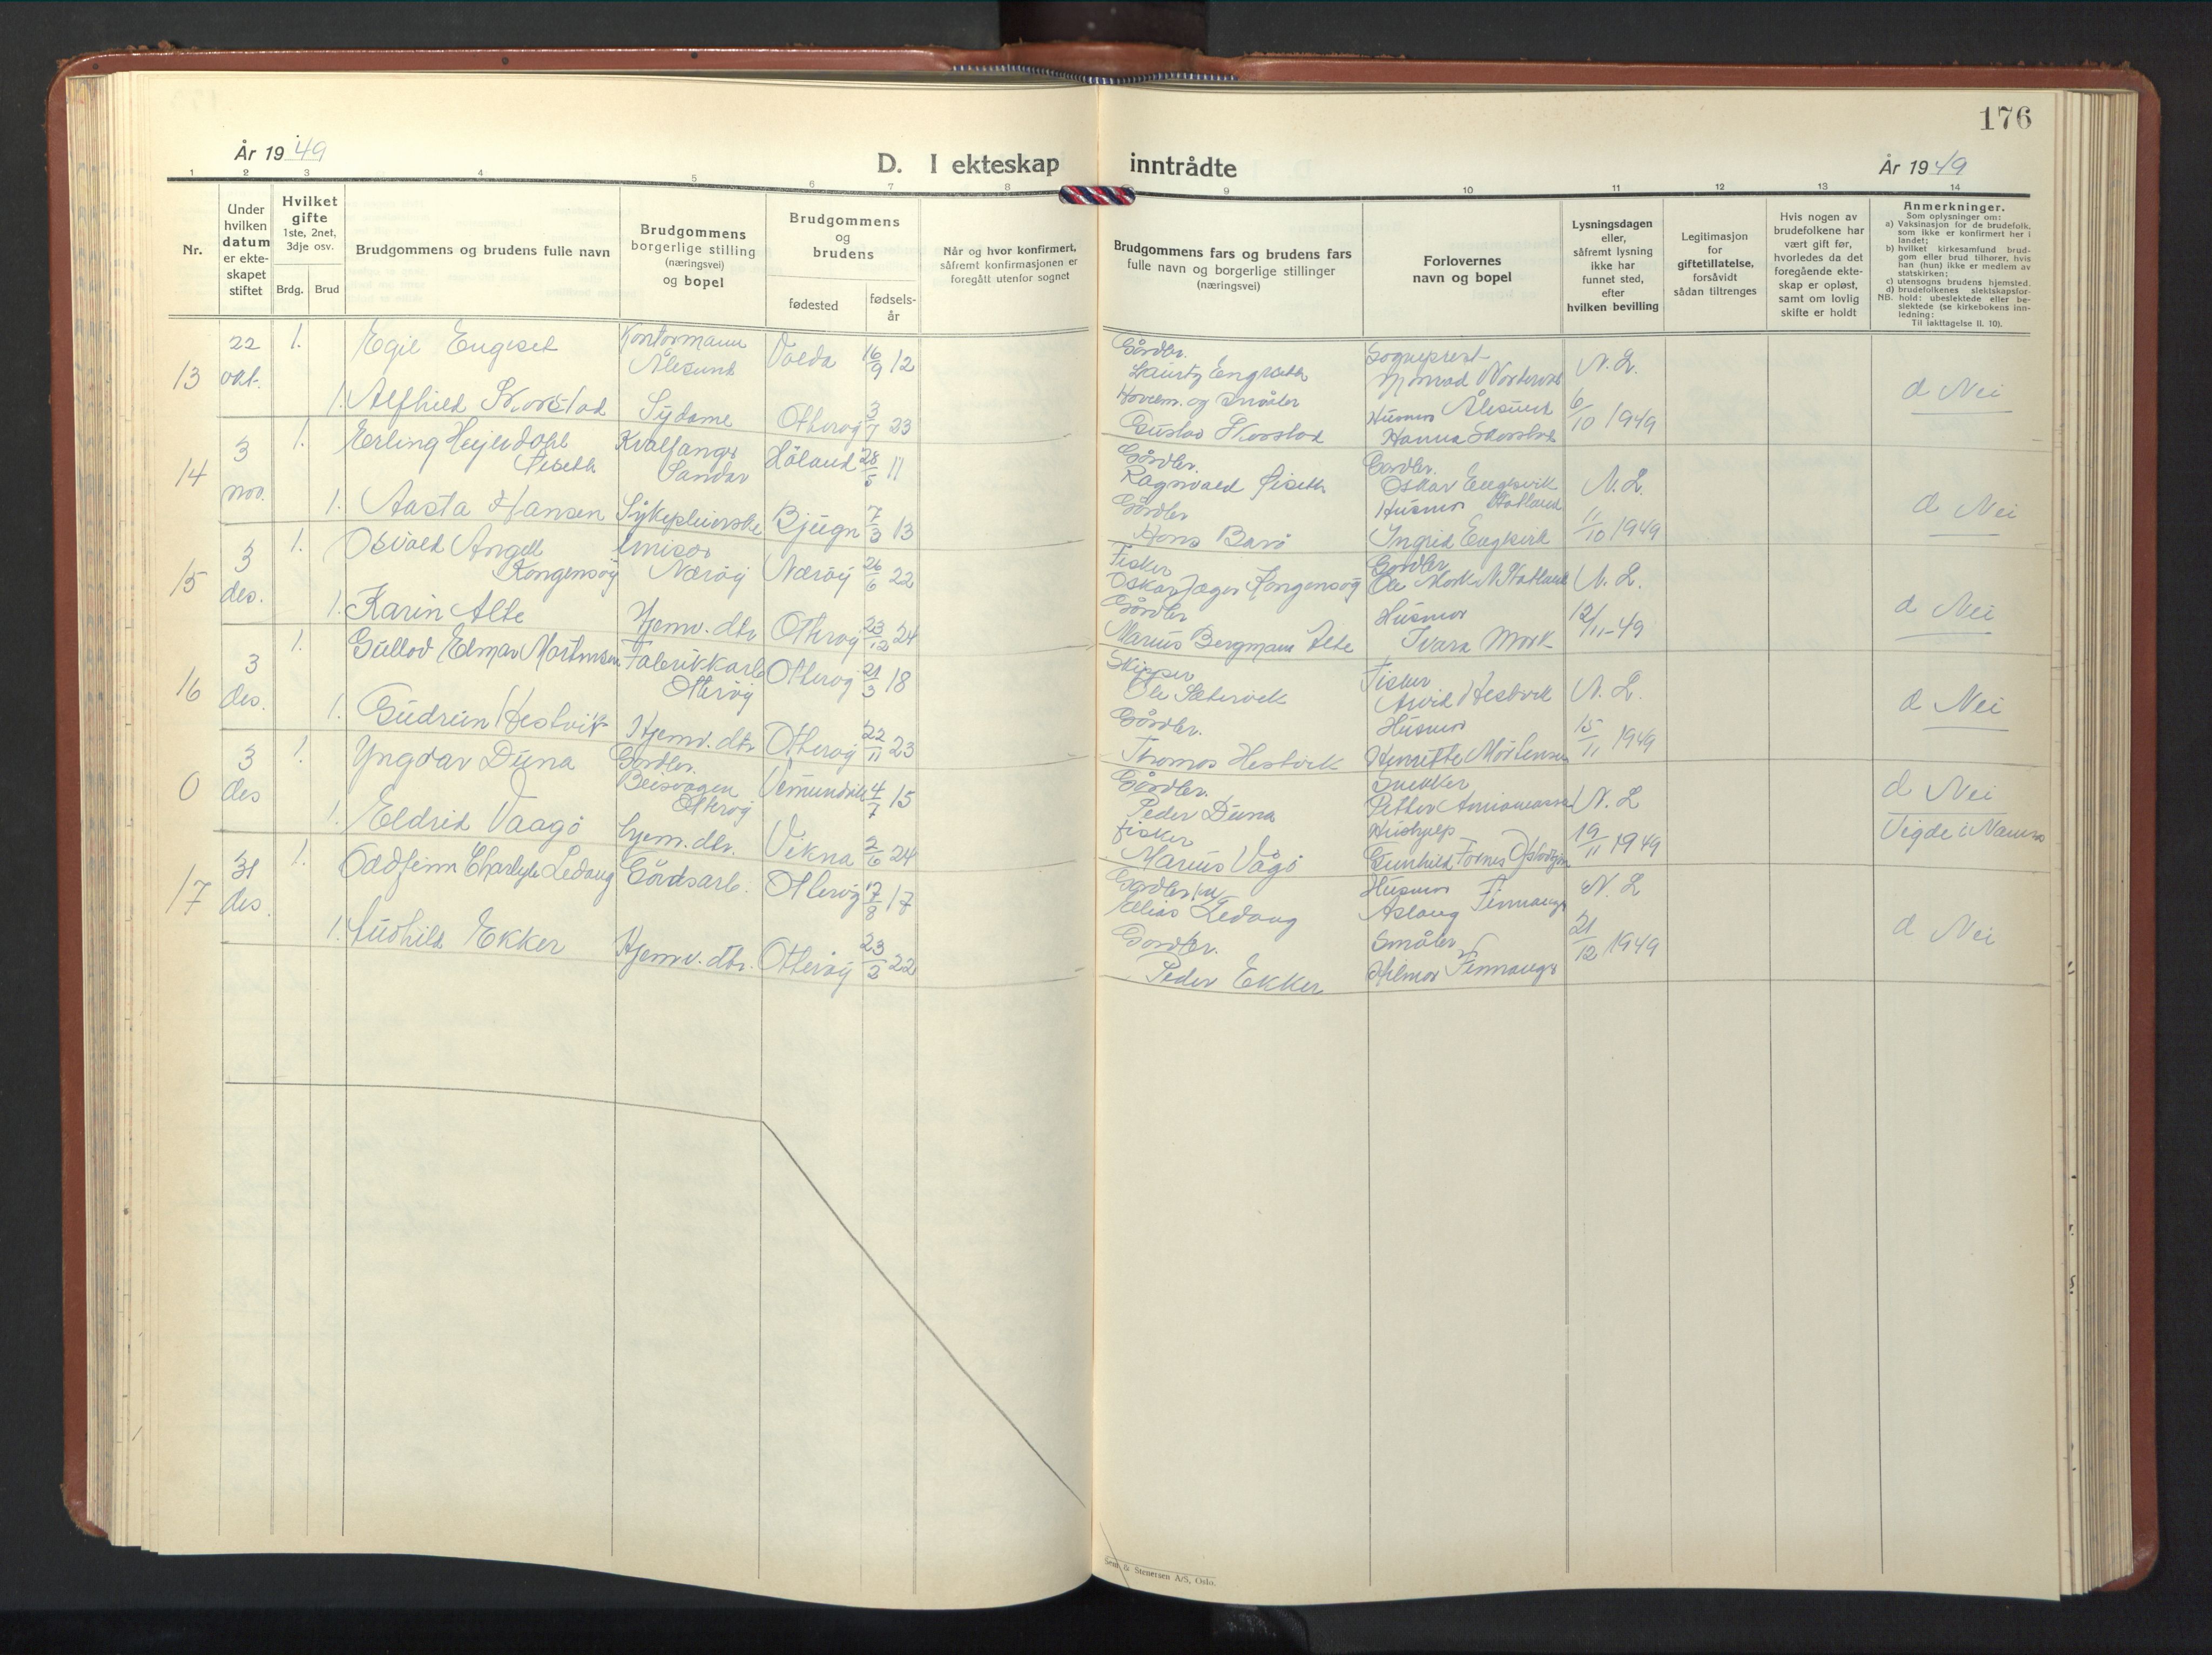 176
År 19 49
D. I ekteskap inntrådte
År 19 49
1 2 3 4 5 6 7 8 9 10 11 12 13 14
Nr.
Under hvilken datum er ekteskapet stiftet
Hvilket gifte 1ste, 2net, 3dje osv.
Brdg. Brud
Brudgommens og brudens fulle navn
Brudgommens borgerlige stilling (næringsvei) og bopel
Brudgommens og brudens
fødested
fødselsår
Når og hvor konfirmert, såfremt konfirmasjonen er foregått utenfor sognet
Brudgommens fars og brudens fars fulle navn og borgerlige stillinger (næringsvei)
Forlovernes navn og bopel
Lysningsdagen eller, såfremt lysning ikke har funnet sted, efter hvilken bevilling
Legitimasjon for giftetillatelse, forsåvidt sådan tiltrenges
Hvis nogen av brudefolkene har vært gift før, hvorledes da det foregående ekteskap er opløst, samt om lovlig skifte er holdt
Anmerkninger.
Som oplysninger om:
a) Vaksinasjon for de brudefolk, som ikke er konfirmert her i landet;
b) hvilket kirkesamfund brudgom eller brud tilhører, hvis han (hun) ikke er medlem av statskirken;
c) utensogns brudens hjemsted.
d) brudefolkenes slektskapsforhold: ubeslektede eller beslektede (se kirkebokens innledning:
NB.
Til iakttagelse II. 10).
13 22 okt. 1. Egil Engeset Kontormann Ålesund Volda 16/9 12 Gårdbr. Lauritz Engeseth Sogneprest N. L. d Nei
1. Alfhild Skorstad Sydame Otterøy 3/7 23 Gustav Skorstad Husmor Ålesund Hanna Skorstad 6/10 1949
14 3 nov. 1. Erling Hejledahl Fiseth Kvalfanger Sandar Höland 28/5 11 Gårdbr. Ragnvald Fiseth Gardbr. Oskar Engesvik N. L. d Nei
1. Aasta Hansen Sykepleierske Bjugn 7/3 13 Gårdbr Hans Husmor Statland Ingrid Engesvik 11/10 1949
15 3 des. 1. Osvald Angell Kongensøy Nærøy Nærøy 26/6 22 Fisker Oskar Jæger Kongensøy Gardbr Ole Mork N. Statland N. L. d Nei
1. Karin Alte Hjemv. dtr Otterøy 23/12 24 Gårdbr Marius Bergmann Alte Husmor Ivara Mork 12/11-49
16 3 des. 1. Gullov Elmar Mortensen Fabrikkarb Otterøy Otterøy 21/3 18 Skipper Ole Sætervik Fisker Arvid Hestvik N. L. d Nei
1. Gudrun Hestvik Hjemv. dtr Otterøy 22/11 23 Gårdbr. Thomas Hestvik Husmor Henriette Mortensen 15/11 1949
0 3 des 1. Yngvar Duna Gardbr. Beisvågen Otterøy Vemundvik 4/7 15 Gårdbr. Peder Duna Snekker Petter N. L d Nei
1. Eldrid Vaagø hjem. dtr. Vikna 2/6 24 fisker Marius Vågø Hushjelp Gunhild Fornes 19/11 1949 Vigde i Namsos
17 31 des. 1. Oddfinn Charlyle Ledang Gårdsarb. Otterøy 17/8 17 Gardbr Elias Ledang Husmor Aslaug Finnanger N. L
1. Audhild Ekker Hjemv. dtr. Otterøy 23/2 22 Gardbr. Peder Ekker Småbr Hilmar Finnanger 21/12 1949 d Nei
Sem & Stenersen A/S, Oslo.